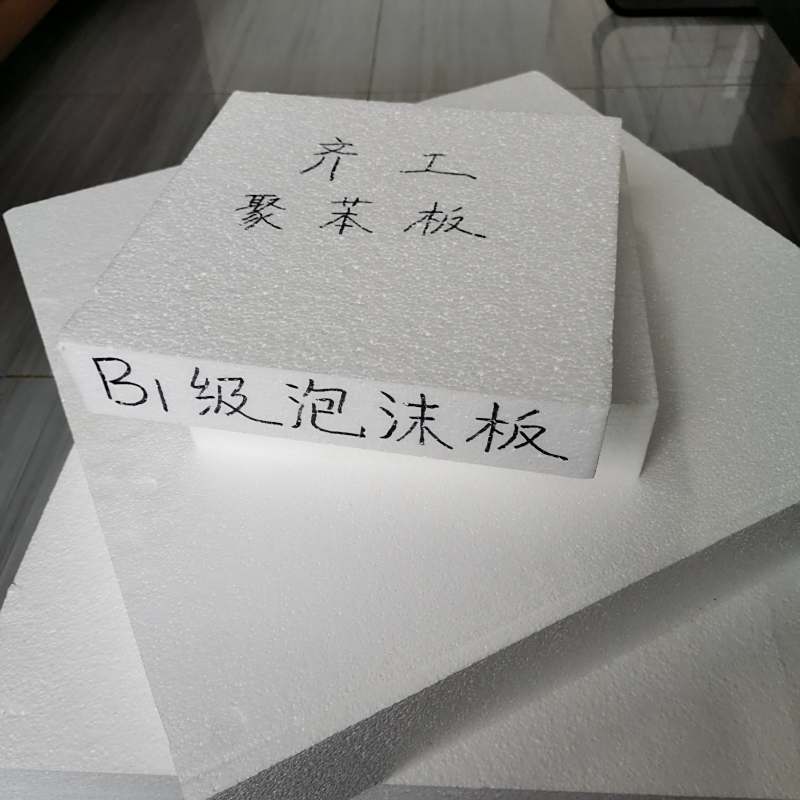 齐工
聚苯板
B1级泡沫板